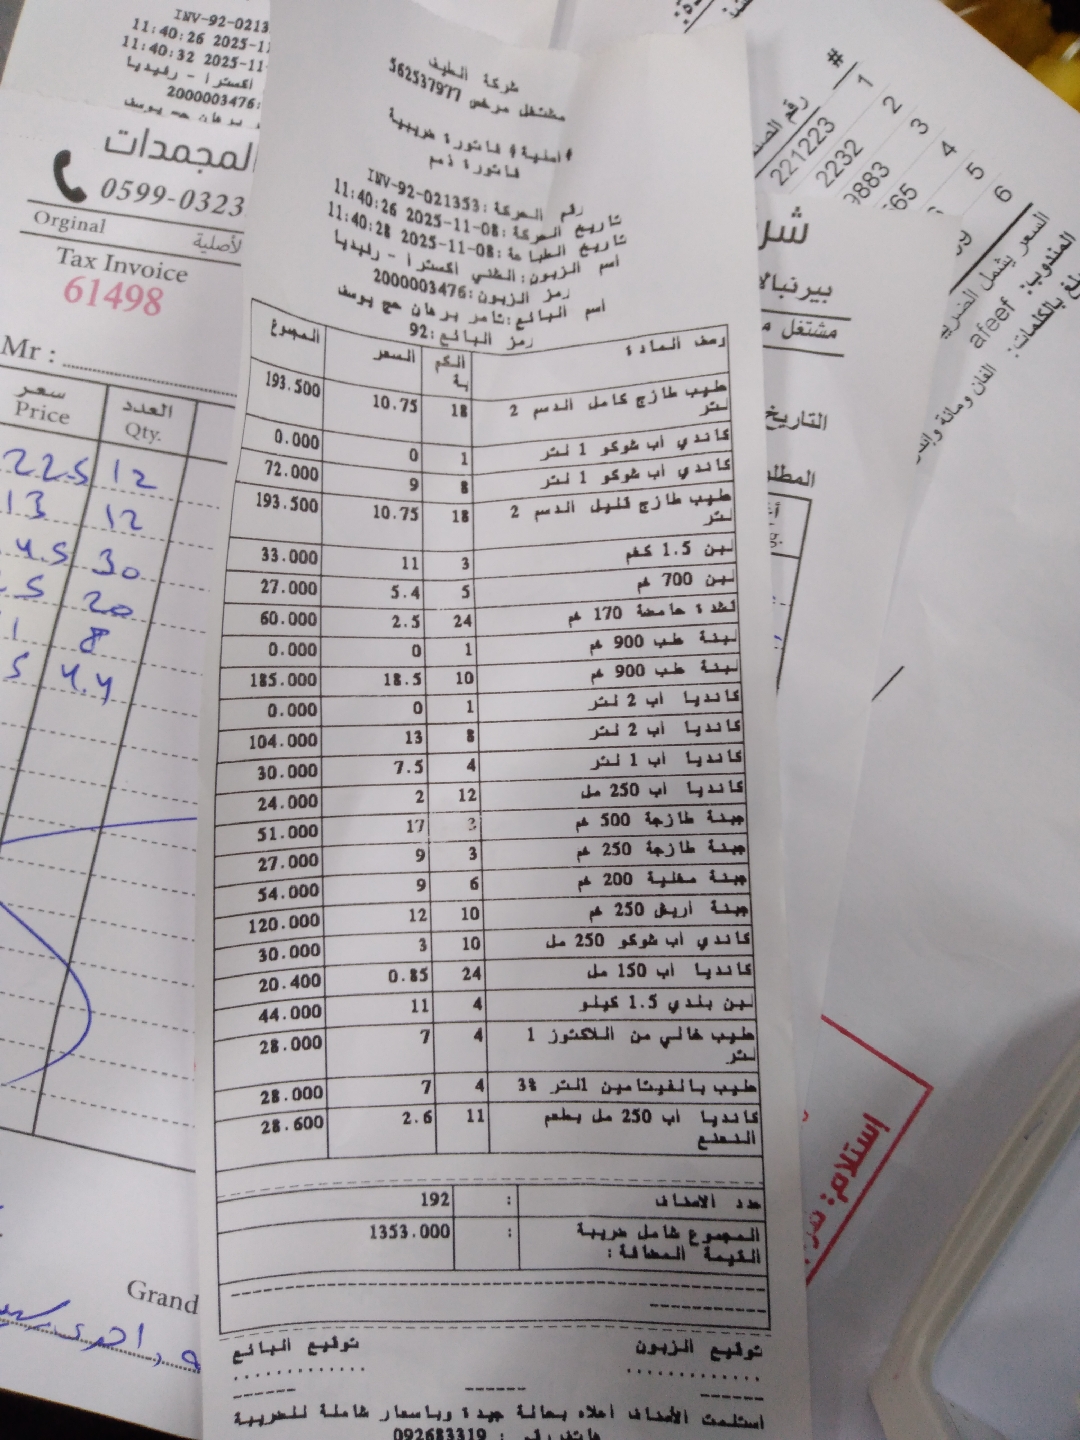 INV-92-0213
11:40:26 2025-11
11:40:32 2025-11
اكسترا - رفيديا
2000003476:
برهان حج يوسف
المجمدات
0599-0323
Orginal
الأصلية
Tax Invoice
61498
Mr :
سعر العدد
Price Qty.
225 12
13 12
4.5 30
20
1 8
5 4.4
Grand
شركة الطيف
مشتغل مرخص 562537977
#أصلية# فاتورة ضريبية
فاتورة ذمم
رقم الحركة:INV-92-021353
تاريخ الحركة:08-11-2025 11:40:26
تاريخ الطباعة:08-11-2025 11:40:28
اسم الزبون:الظني اكسترا - رفيديا
رمز الزبون:2000003476
اسم البائع:تامر برهان حج يوسف
رمز البائع:92
وصف المادة الكمية السعر المجموع
حليب طازج كامل الدسم 2 لتر 18 10.75 193.500
كاندي أب شوكو 1 لتر 1 0 0.000
كاندي أب شوكو 1 لتر 8 9 72.000
حليب طازج قليل الدسم 2 لتر 18 10.75 193.500
لبن 1.5 كغم 3 11 33.000
لبن 700 غم 5 5.4 27.000
قشدة حامضة 170 غم 24 2.5 60.000
لبنة طب 900 غم 1 0 0.000
لبنة طب 900 غم 10 18.5 185.000
كانديا أب 2 لتر 1 0 0.000
كانديا أب 2 لتر 8 13 104.000
كانديا أب 1 لتر 4 7.5 30.000
كانديا أب 250 مل 12 2 24.000
جبنة طازجة 500 غم 3 17 51.000
جبنة طازجة 250 غم 3 9 27.000
جبنة مغلية 200 غم 6 9 54.000
جبنة أريش 250 غم 10 12 120.000
كاندي أب شوكو 250 مل 10 3 30.000
كانديا أب 150 مل 24 0.85 20.400
لبن بلدي 1.5 كيلو 4 11 44.000
حليب خالي من اللاكتوز 1 لتر 4 7 28.000
حليب بالفيتامين 1لتر 3% 4 7 28.000
كانديا أب 250 مل بطعم النعنع 11 2.6 28.600
عدد الاصناف : 192
المجموع شامل ضريبة القيمة المضافة: : 1353.000
توقيع الزبون توقيع البائع
استلمت الأصناف أعلاه بحالة جيدة وباسعار شاملة للضريبة
هاتف رقم : 092683319
#
رقم الصن
1 221223
2 2232
3 9883
4 65
5
6
السعر يشمل الضري
المندوب: afeef
بالكلمات: الفان ومائة وإثن
بيرنبالا
مشتغل م
التاريخ
المطلو
إستلام: